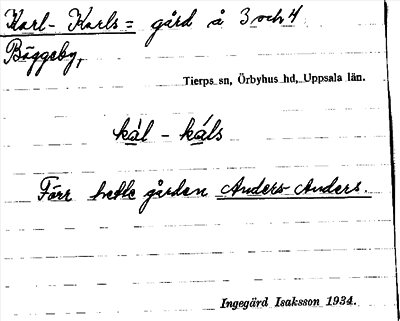 Karl- Karls = gård å 3 och 4
Böggeby,
Tierps sn, Örbyhus hd, Uppsala län.
kàl - káls
Förr hette gården Anders-Anders.
Ingegärd Isaksson 1934.